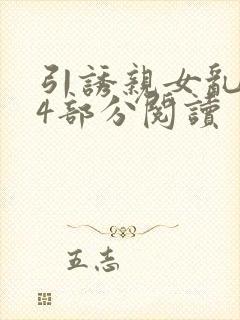 引誘親女亂
4部分閱讀
五志